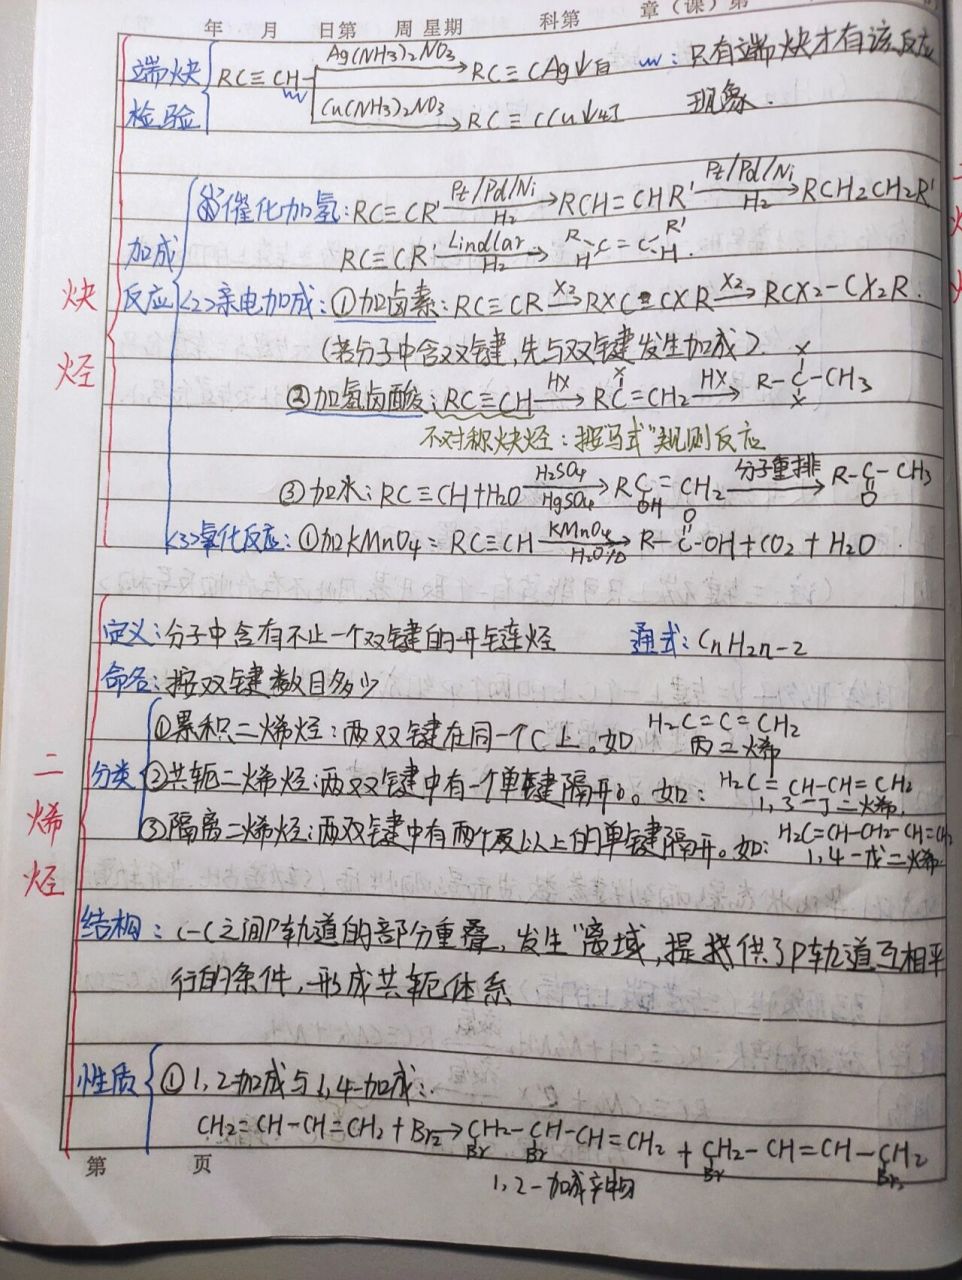 年 月 日第 周 星期 科第 章（课）第
端炔 RC≡CH Ag(NH3)2NO3 RC≡CAg↓白 : 只有端炔才有该反应
检验 Cu(NH3)2NO3 RC≡CCu↓红 现象.
<1>催化加氢: RC≡CR' Pt/Pd/Ni H2 → RCH=CHR' Pt/Pd/Ni H2 → RCH2CH2R'
加成 RC≡CR' Lindlar H2 → R H C=C R' H
炔 反应 <2>亲电加成: ①加卤素: RC≡CR X2 → RXC=CXR X2 → RCX2-CX2R.
烃 (若分子中含双键, 先与双键发生加成).
②加氢卤酸: RC≡CH HX → RC=CH2 X HX → R-C-CH3 X X
不对称炔烃: 按马式"规则反应
③加水: RC≡CH+H2O H2SO4 HgSO4 → RC=CH2 OH 分子重排 → R-C-CH3 O
<3>氧化反应: ①加KMnO4: RC≡CH KMnO4 H2O → R-C-OH O +CO2+H2O.
定义: 分子中含有不止一个双键的开链烃 通式: CnH2n-2
命名: 按双键数目多少
①累积二烯烃: 两双键在同一个C上。如 H2C=C=CH2 丙二烯
二 分类 ②共轭二烯烃: 两双键中有一个单键隔开。如: H2C=CH-CH=CH2 1,3-丁二烯.
烯 ③隔离二烯烃: 两双键中有两个及以上的单键隔开。如: H2C=CH-CH2-CH=CH2 1,4-戊二烯
烃
结构: C-C之间P轨道的部分重叠, 发生"离域, 提供了P轨道互相平
行的条件, 形成共轭体系
性质 ①1,2-加成与1,4-加成:
CH2=CH-CH=CH2+Br2→CH2-CH-CH=CH2 + CH2-CH=CH-CH2
Br Br Br Br
第 页 1,2-加成产物